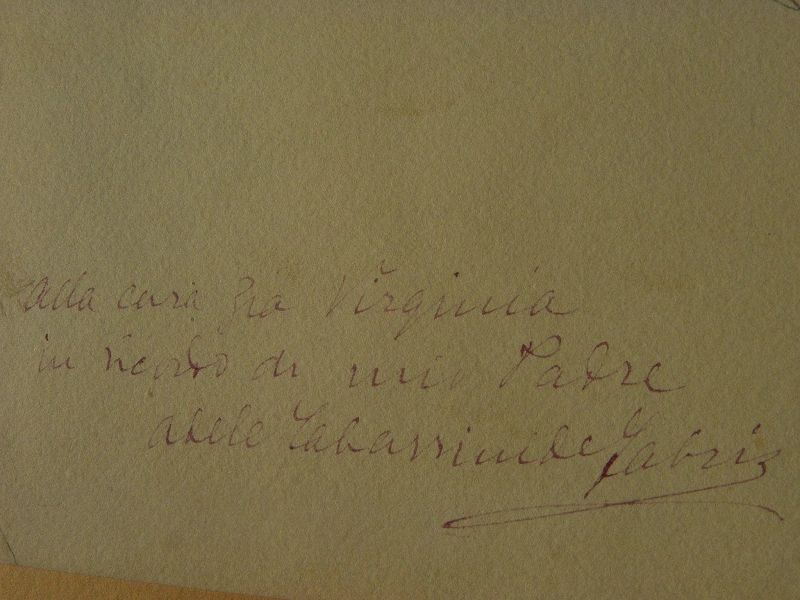 alla cara zia Virginia
in ricordo di mio Padre
adele Tabassi de Fabris